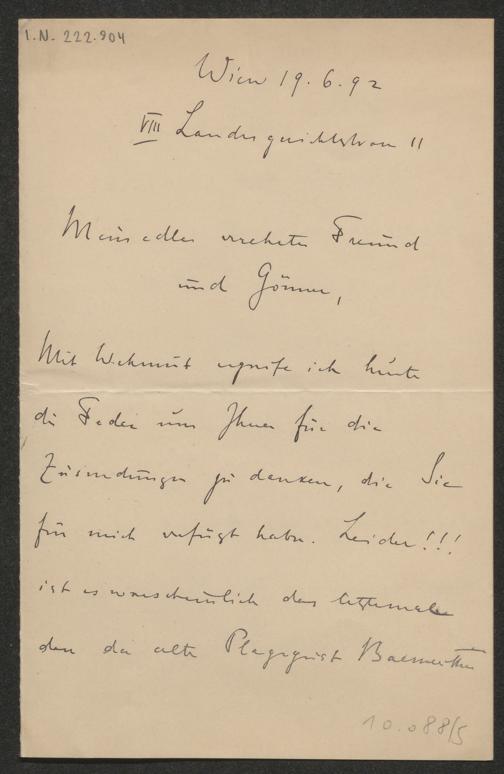 I.N. 222.904
Wien 19.6.92
VIII Landesgerichtsstrasse 11
Mein edler verehrter Freund
und Gönner,
Mit Wehmut ergreife ich heute
die Feder um Ihnen für die
Zusendungen zu danken, die Sie
für mich verfügt haben. Leider!!!
ist es warscheinlich das letztemal
den der alte Plagegeist
10.088/5